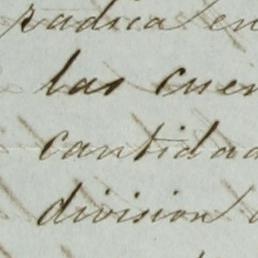 radica en
las cuen
cantidad
division